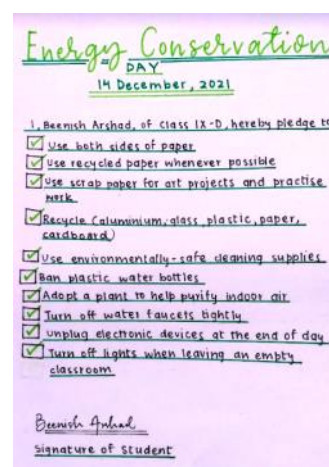 Energy Conservation
DAY
14 December, 2021
I, Beenish Arshad, of Class IX-D, hereby pledge to
Use both sides of paper
Use recycled paper whenever possible
Use scrap paper for art projects and practise
work
Recycle (aluminium, glass, plastic, paper,
cardboard)
Use environmentally-safe cleaning supplies
Ban plastic water bottles
Adopt a plant to help purify indoor air
Turn off water faucets tightly
Unplug electronic devices at the end of day
Turn off lights when leaving an empty
classroom
Beenish Arshad
Signature of Student